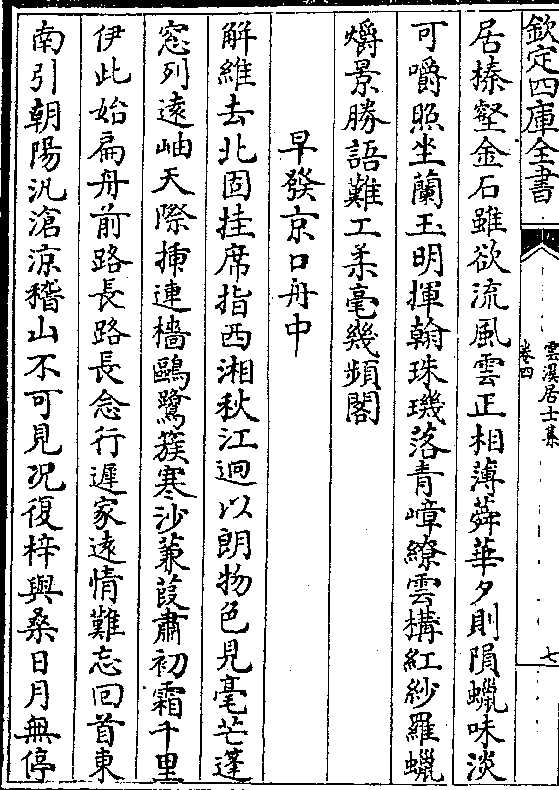 欽定四庫全書
雲溪居士集
卷四
七
居榛壑金石雖欲流風雲正相薄蕣華夕則隕蠟味淡
可嚼照坐蘭玉明揮翰珠璣落青嶂繚雲構紅紗羅蠟
爝景勝語難工柔毫幾頻閣
早發京口舟中
解維去北固挂席指西湘秋江迥以朗物色見毫芒蓬
窓列遠岫天際揷連檣鷗鷺簇寒沙蒹葭肅初霜千里
伊此始扁舟前路長路長念行遲家遠情難忘回首東
南引朝陽汎滄涼稽山不可見况復梓與桑日月無停